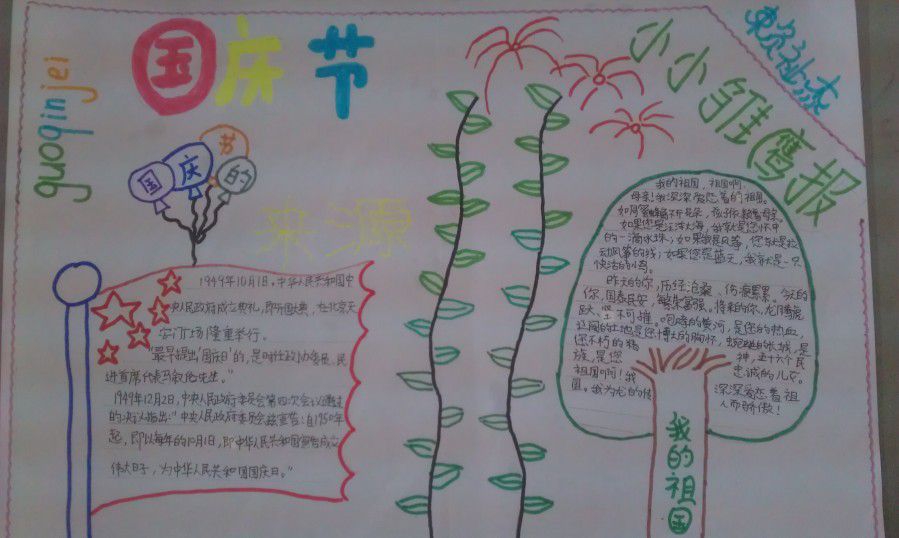 guoqinjei
国庆节
小小雏鹰报
国庆节的
来源
1949年10月1日,中华人民共和国中
央人民政府成立典礼,即开国大典,在北京天
安门广场隆重举行。
"最早提出'国庆日'的,是时任政协委员、民
进首席代表马叙伦先生。"
1949年12月2日,中央人民政府委员会第四次会议通过
的决议指出:"中央人民政府委员会兹宣告:自1950年
起,即以每年的10月1日,即中华人民共和国宣告成立
伟大日子,为中华人民共和国国庆日。"
我的祖国,祖国啊,
母亲!我深深爱恋着的祖国。
如果您是大海,我就是您怀中
的一滴水珠;如果我是风筝,您就是拉
动风筝的线;如果您是蓝天,我就是一只
快活的小鸟。
昨天的你,历经沧桑,伤痕累累。今天的
你,国泰民安,繁荣富强。将来的你,龙腾虎
跃,坚不可摧。咆哮的黄河,是您的热血,
辽阔的土地是您博大的胸怀,蜿蜒的长城,是
您不朽的精神,五十六个民
族,是您忠诚的儿女。
祖国啊!我深深爱恋着祖
国。我为您的而骄傲!
我的祖国